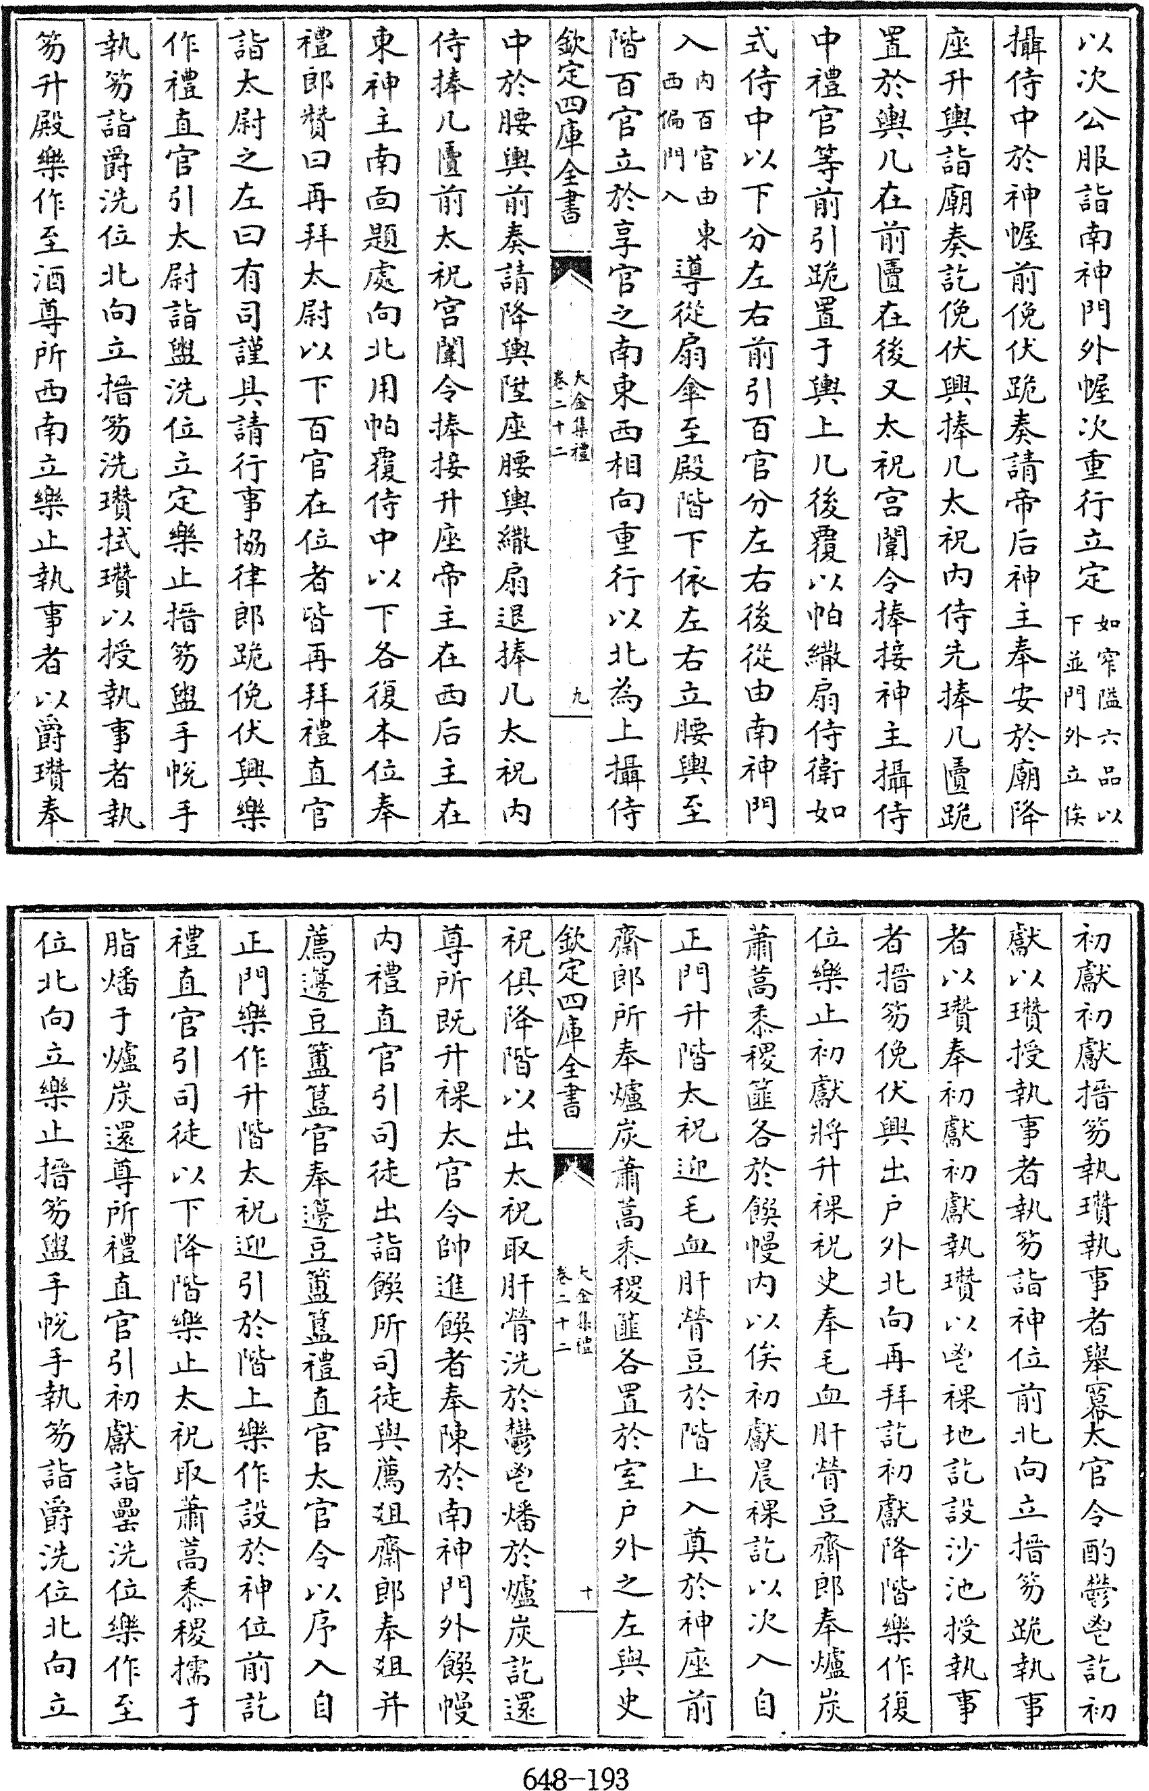 以次公服詣南神門外幄次重行立定如窄隘六品以下並門外立俟
攝侍中於神幄前俛伏跪奏請帝后神主奉安於廟降
座升輿詣廟奏訖俛伏興捧几太祝內侍先捧几匵跪
置於輿几在前匵在後又太祝宮闈令捧接神主攝侍
中禮官等前引跪置于輿上几後覆以帕繖扇侍衛如
式侍中以下分左右前引百官分左右後從由南神門
入內百官由東西偏門入導從扇傘至殿階下依左右立腰輿至
階百官立於享官之南東西相向重行以北為上攝侍
欽定四庫全書
大金集禮
卷二十二
九
中於腰輿前奏請降輿陞座腰輿繖扇退捧几太祝內
侍捧几匵前太祝宮闈令捧接升座帝主在西后主在
東神主南面題處向北用帕覆侍中以下各復本位奉
禮郎贊曰再拜太尉以下百官在位者皆再拜禮直官
詣太尉之左曰有司謹具請行事協律郎跪俛伏興樂
作禮直官引太尉詣盥洗位立定樂止搢笏盥手帨手
執笏詣爵洗位北向立搢笏洗瓚拭瓚以授執事者執
笏升殿樂作至酒尊所西南立樂止執事者以爵瓚奉
初獻初獻搢笏執瓚執事者舉冪太官令酌鬱鬯訖初
獻以瓚授執事者執笏詣神位前北向立搢笏跪執事
者以瓚奉初獻初獻執瓚以鬯祼地訖設沙池授執事
者搢笏俛伏興出戶外北向再拜訖初獻降階樂作復
位樂止初獻將升祼祝史奉毛血肝膋豆齋郎奉爐炭
蕭蒿黍稷篚各於饌幔內以俟初獻晨祼訖以次入自
正門升階太祝迎毛血肝膋豆於階上入奠於神座前
齋郎所奉爐炭蕭蒿黍稷篚各置於室戶外之左與史
欽定四庫全書
大金集禮
卷二十二
十
祝俱降階以出太祝取肝膋洗於鬱鬯燔於爐炭訖還
尊所既升祼太官令帥進饌者奉陳於南神門外饌幔
內禮直官引司徒出詣饌所司徒與薦俎齋郎奉俎并
薦籩豆簠簋官奉籩豆簠簋禮直官太官令以序入自
正門樂作升階太祝迎引於階上樂作設於神位前訖
禮直官引司徒以下降階樂止太祝取蕭蒿黍稷擩于
脂燔于爐炭還尊所禮直官引初獻詣罍洗位樂作至
位北向立樂止搢笏盥手帨手執笏詣爵洗位北向立
648-193